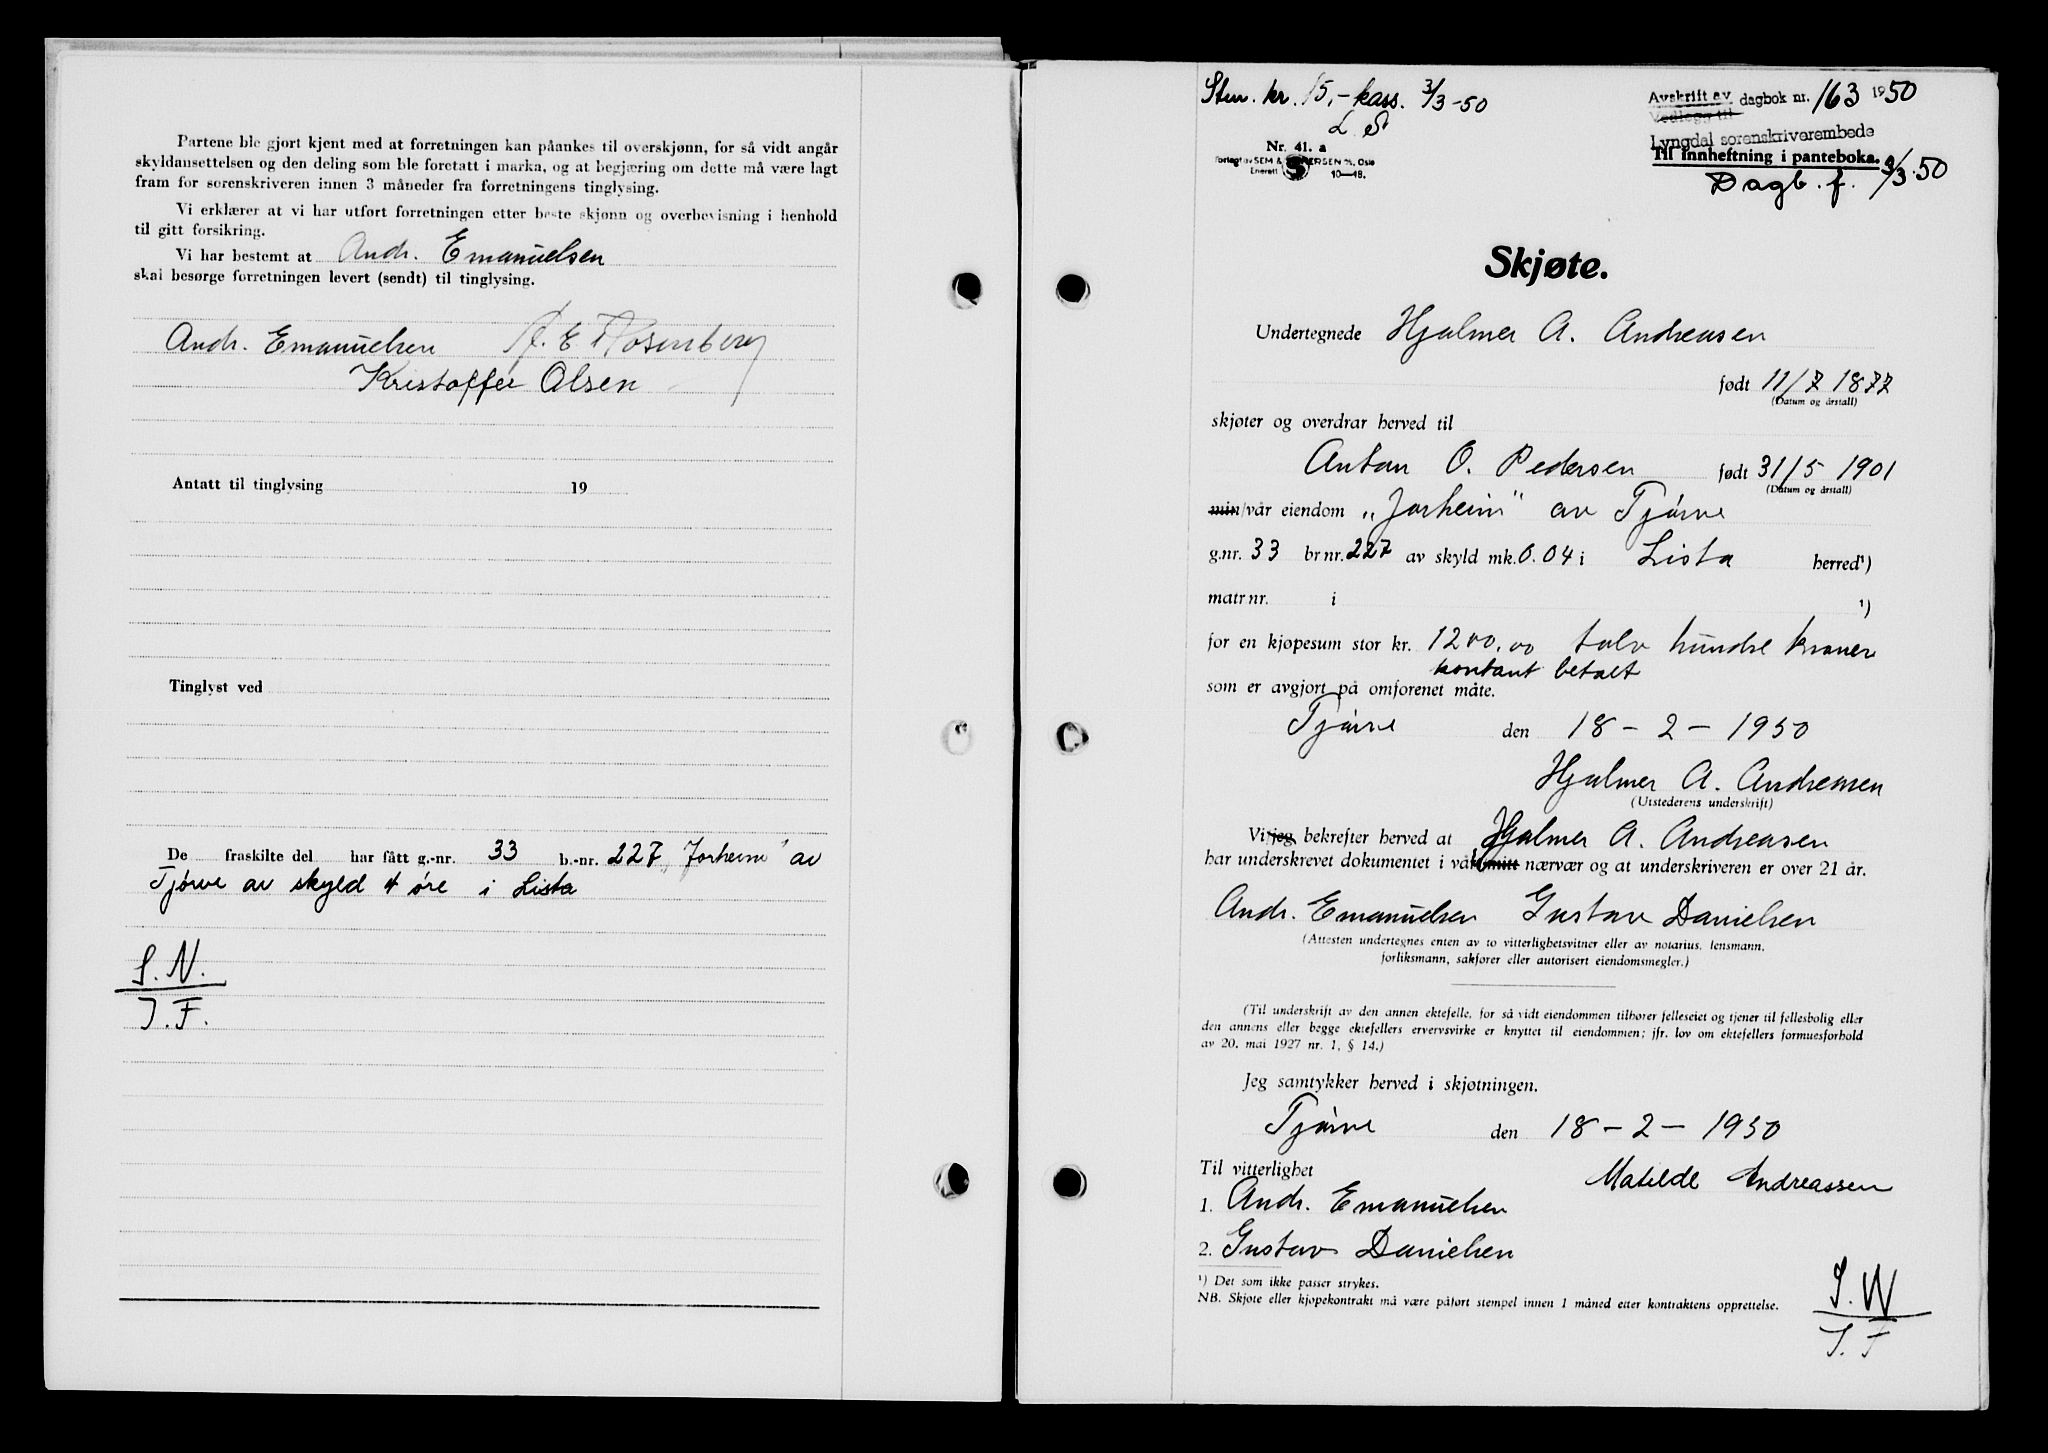 Partene ble gjort kjent med at forretningen kan påankes til overskjønn, for så vidt angår
skyldansettelsen og den deling som ble foretatt i marka, og at begjæring om dette må være lagt
fram for sorenskriveren innen 3 måneder fra forretningens tinglysing.
Vi erklærer at vi har utført forretningen etter beste skjønn og overbevisning i henhold
til gitt forsikring.
Vi har bestemt at Andr. Emanuelsen
skal besørge forretningen levert (sendt) til tinglysing.
Andr. Emanuelsen E. Rosenberg
Kristoffer Olsen
Antatt til tinglysing 19
Tinglyst ved
De fraskilte del har fått g.-nr. 33 b.-nr. 227 „Jorheim" av
Tjørve av skyld 4 øre i Lista
S.N.
J.F.
Stem. kr. 15,- kass. 3/3-50
L S
Nr. 41. a
Forlagt av SEM & STENERSEN A/s, Oslo
Enerett S 10—48.
Avskrift av dagbok nr. 163 1950
Vedlegg til
Lyngdal sorenskriverembede
Til innheftning i panteboka.
Dagb. f. 3/3.50
Skjøte.
Undertegnede Hjalmer A. Andreasen
født 11/7 1877
(Datum og årstall)
skjøter og overdrar herved til
Anton O. Pedersen født 31/5 1901
(Datum og årstall)
min/vår eiendom „Jorheim" av Tjørve
g.nr. 33 br nr. 227 av skyld mk. 0.04 i Lista herred¹)
matr nr. i ¹)
for en kjøpesum stor kr. 1200,00 tolv hundre kroner
kontant betalt
som er avgjort på omforenet måte.
Tjørve den 18 - 2 - 1950
Hjalmer A. Andreasen
(Utstederens underskrift)
Vi/jeg bekrefter herved at Hjalmer A. Andreasen
har underskrevet dokumentet i vårt/mitt nærvær og at underskriveren er over 21 år.
Andr. Emanuelsen Gustav Danielsen
(Attesten undertegnes enten av to vitterlighetsvitner eller av notarius, lensmann,
forliksmann, sakfører eller autorisert eiendomsmegler.)
(Til underskrift av den annen ektefelle, for så vidt eiendommen tilhører felleseiet og tjener til fellesbolig eller
den annens eller begge ektefellers ervervsvirke er knyttet til eiendommen; jfr. lov om ektefellers formuesforhold
av 20. mai 1927 nr. 1, § 14.)
Jeg samtykker herved i skjøtningen.
Tjørve den 18 - 2 - 1950
Til vitterlighet Matilde Andreassen
1. Andr. Emanuelsen
2. Gustav Danielsen
¹) Det som ikke passer strykes.
NB. Skjøte eller kjøpekontrakt må være påført stempel innen 1 måned etter kontraktens opprettelse.
S.N
J.F